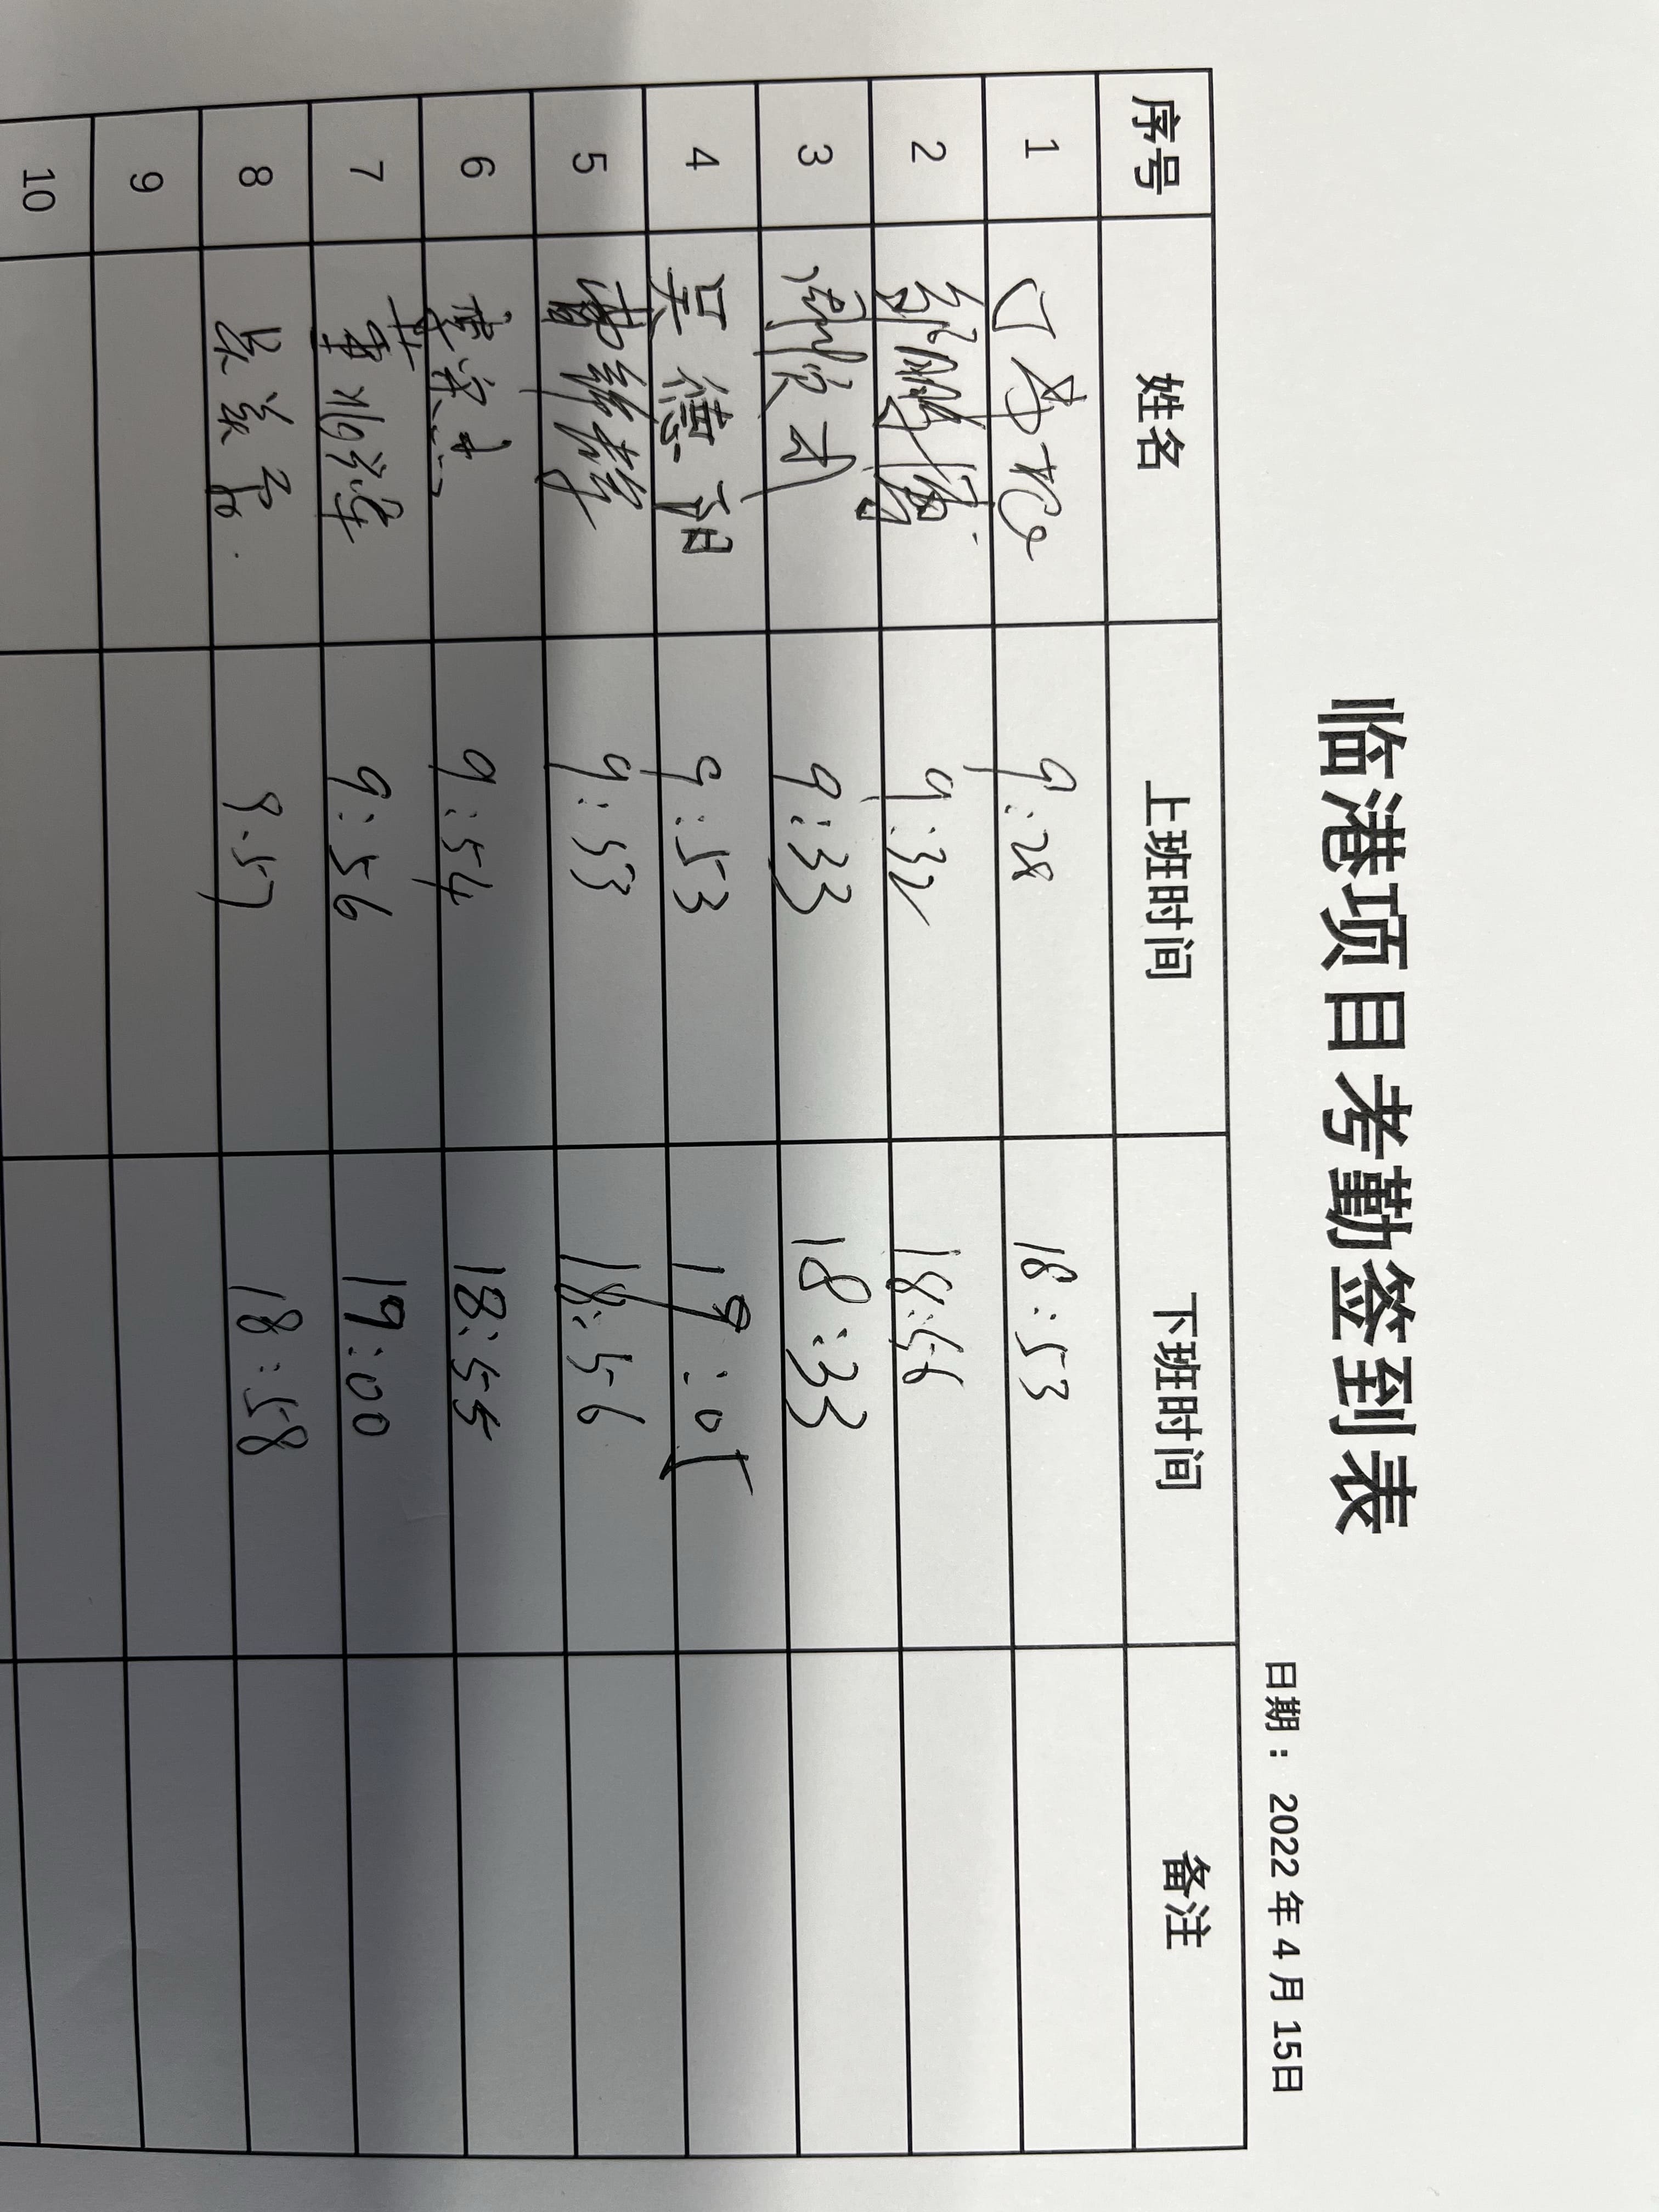 临港项目考勤签到表
日期： 2022 年 4 月 15日
序号 姓名 上班时间 下班时间 备注
1 9:28 18:53
2 邹鹏博 9:32 18:56
3 周顺才 9:33 18:33
4 吴德阳 9:53 19:05
5 曹 9:53 18:56
6 李宗杰 9:54 18:55
7 董兆 9:56 19:00
8 吴美 9.57 18:58
9
10